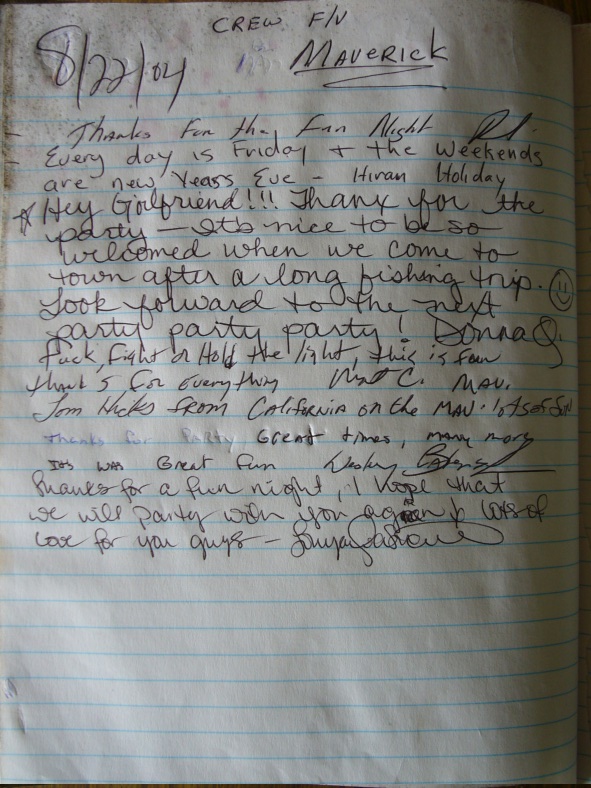 CREW F/V
8/22/04 MAVERICK
- Thanks For the Fun Night
- Every day is Friday + the weekends
are new Years Eve - Hiram Holiday
☆ Hey Girlfriend!!! Thanx for the
party - It's nice to be so
welcomed when we come to
town after a long fishing trip. ☺
Look forward to the next
party party party! Donna J.
Fuck, Fight or Hold the light, this is fun
thank's for everything Matt C. MAV.
Tom Hicks FROM CALIFORNIA ON the MAV. lots of fun
thanks for Party Great times, many more
Its was Great fun Wesley
thanks for a fun night, I hope that
we will party with you again & lots of
love for you guys - Sonya